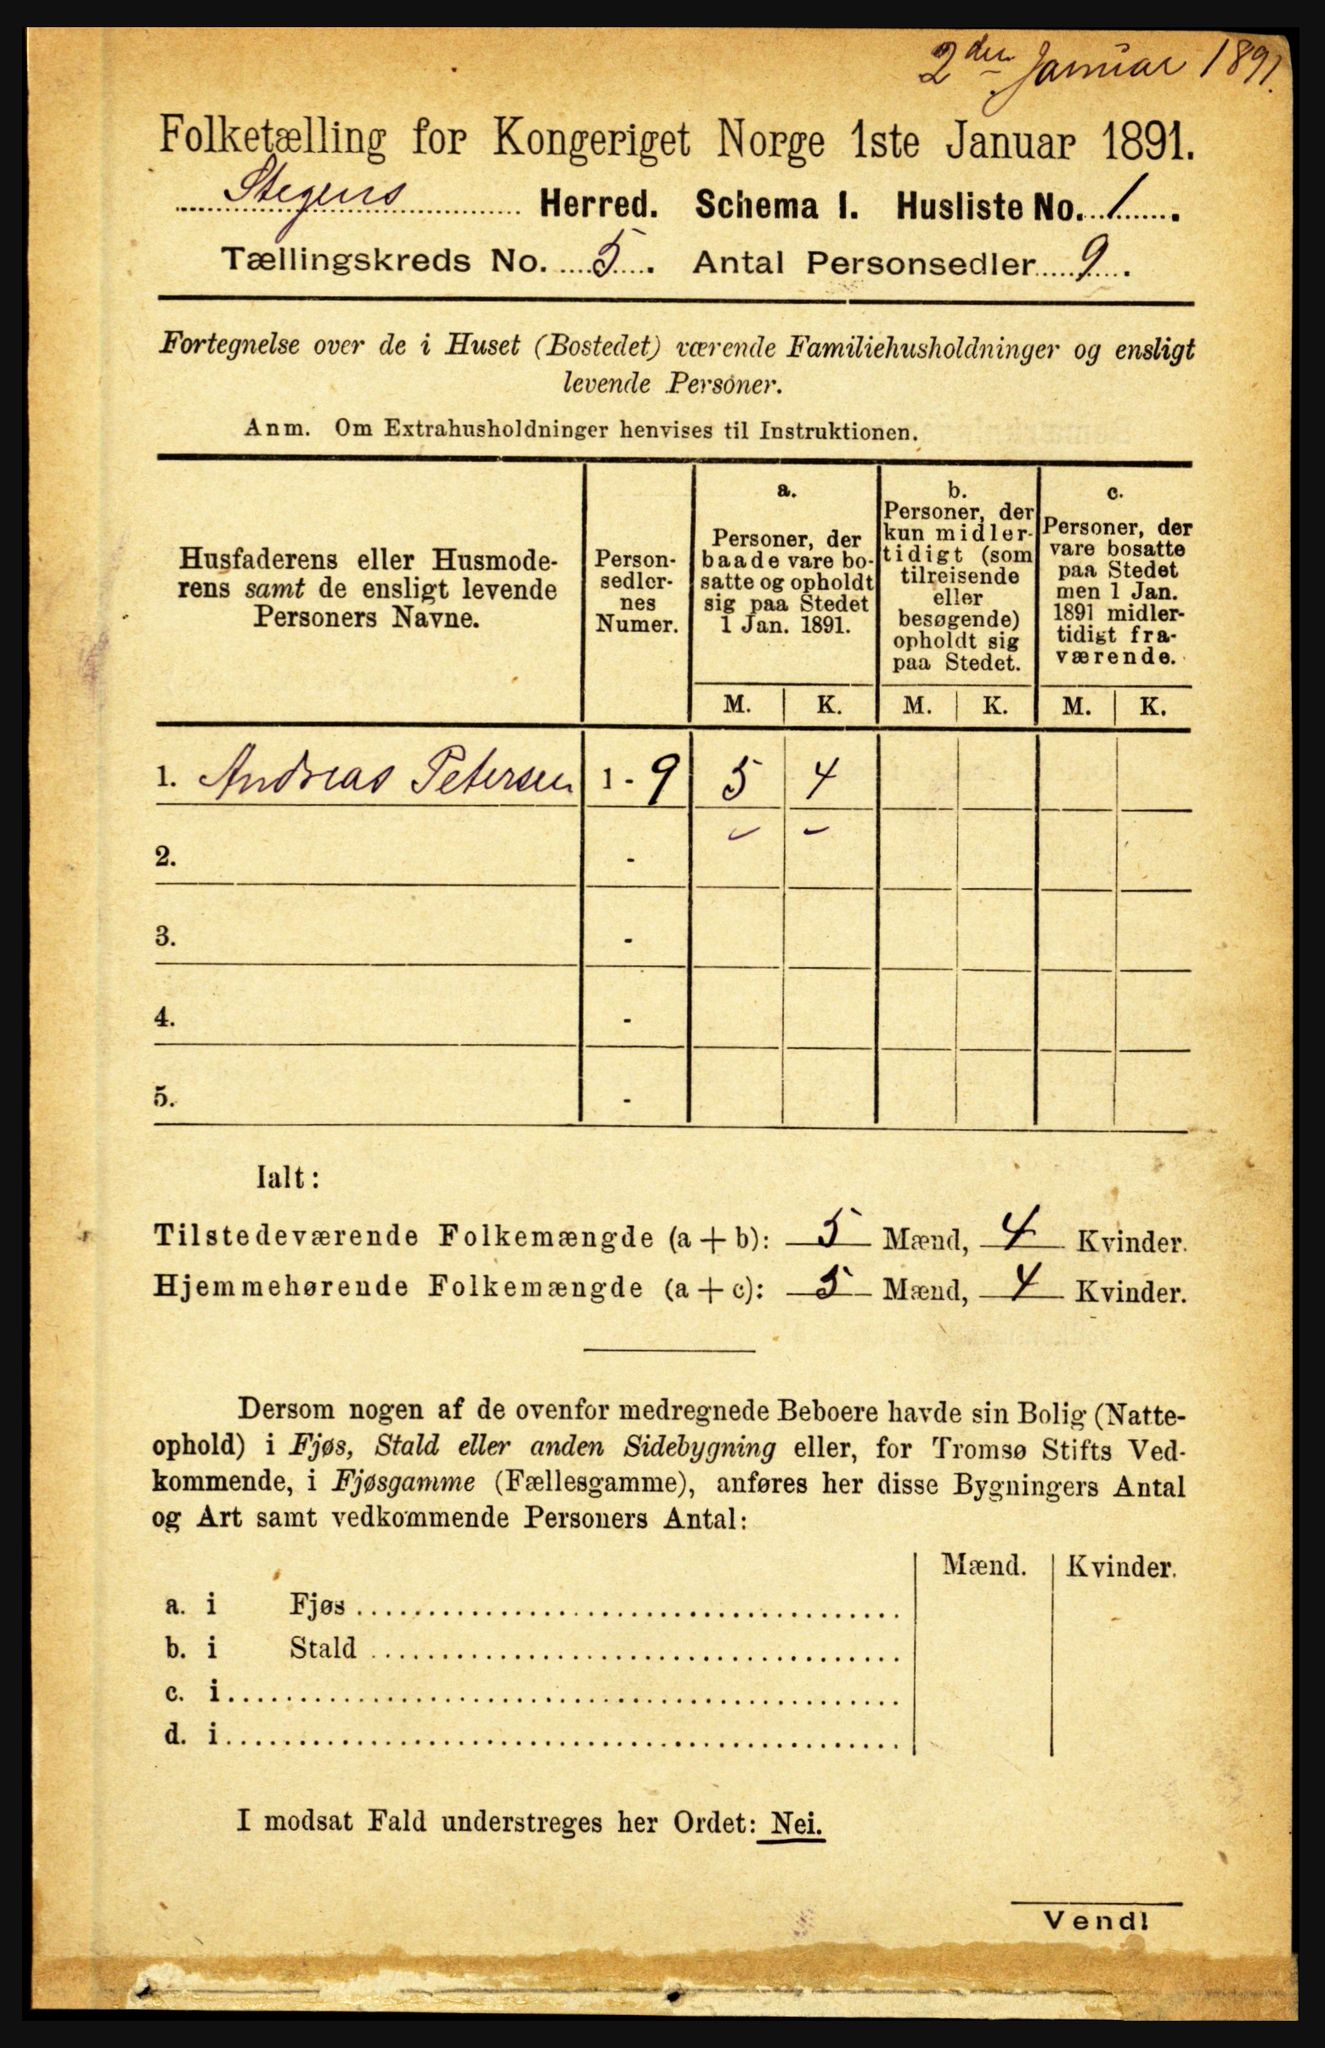 2den Januar 1891.
Folketælling for Kongeriget Norge 1ste Januar 1891.
Stegens Herred. Schema 1. Husliste No. 1.
Tællingskreds No. 5. Antal Personsedler 9.
Fortegnelse over de i Huset (Bostedet) værende Familiehusholdninger og ensligt
levende Personer.
Anm. Om Extrahusholdninger henvises til Instruktionen.
Husfaderens eller Husmode-
rens samt de ensligt levende
Personers Navne.
Person-
sedler-
nes
Numer.
a.
Personer, der
baade vare bo-
satte og opholdt
sig paa Stedet
1 Jan. 1891.
b.
Personer, der
kun midler-
tidigt (som
tilreisende
eller
besøgende)
opholdt sig
paa Stedet.
c.
Personer, der
vare bosatte
paa Stedet
men 1 Jan.
1891 midler-
tidigt fra-
værende.
M. K. M. K. M. K.
1. Andreas Petersen 1 - 9 5 4
2. -
3. -
4. -
5. -
Ialt:
Tilstedeværende Folkemængde (a + b): 5 Mænd, 4 Kvinder.
Hjemmehørende Folkemængde (a + c): 5 Mænd, 4 Kvinder.
Dersom nogen af de ovenfor medregnede Beboere havde sin Bolig (Natte-
ophold) i Fjøs, Stald eller anden Sidebygning eller, for Tromsø Stifts Ved-
kommende, i Fjøsgamme (Fællesgamme), anføres her disse Bygningers Antal
og Art samt vedkommende Personers Antal:
Mænd. Kvinder.
a. i Fjøs
b. i Stald
c. i
d. i
I modsat Fald understreges her Ordet: Nei.
Vendl